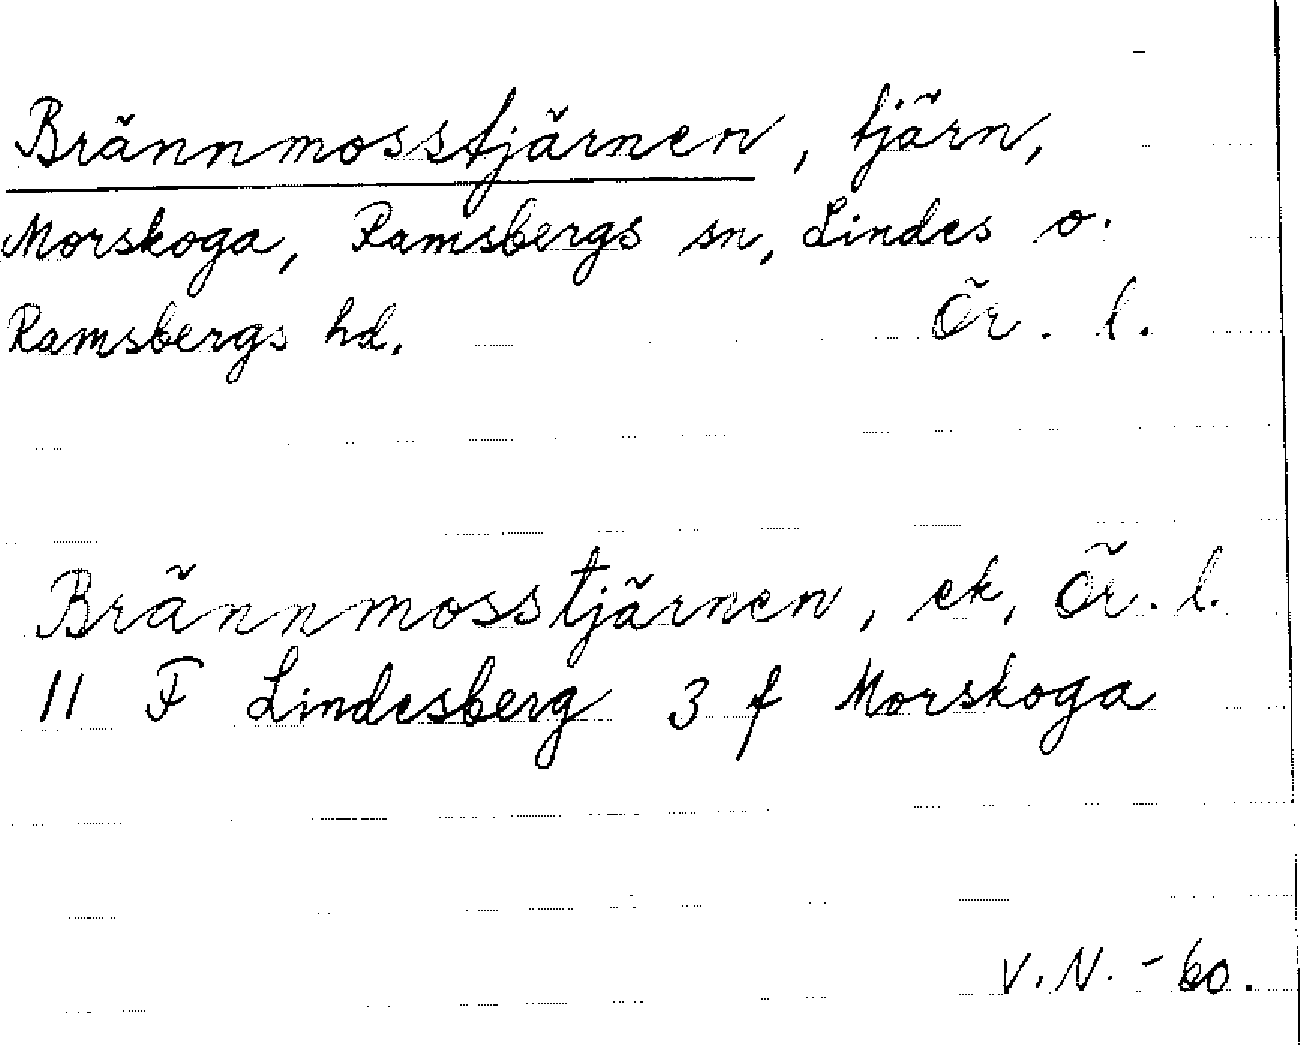 Brännmosstjärnen, tjärn,
Morskoga, Ramsbergs sn, Lindes o.
Ramsbergs hd. Ör. l.
Brännmosstjärnen, ek, Ör. l.
11 F Lindesberg 3 f Morskoga
V.N. -60.